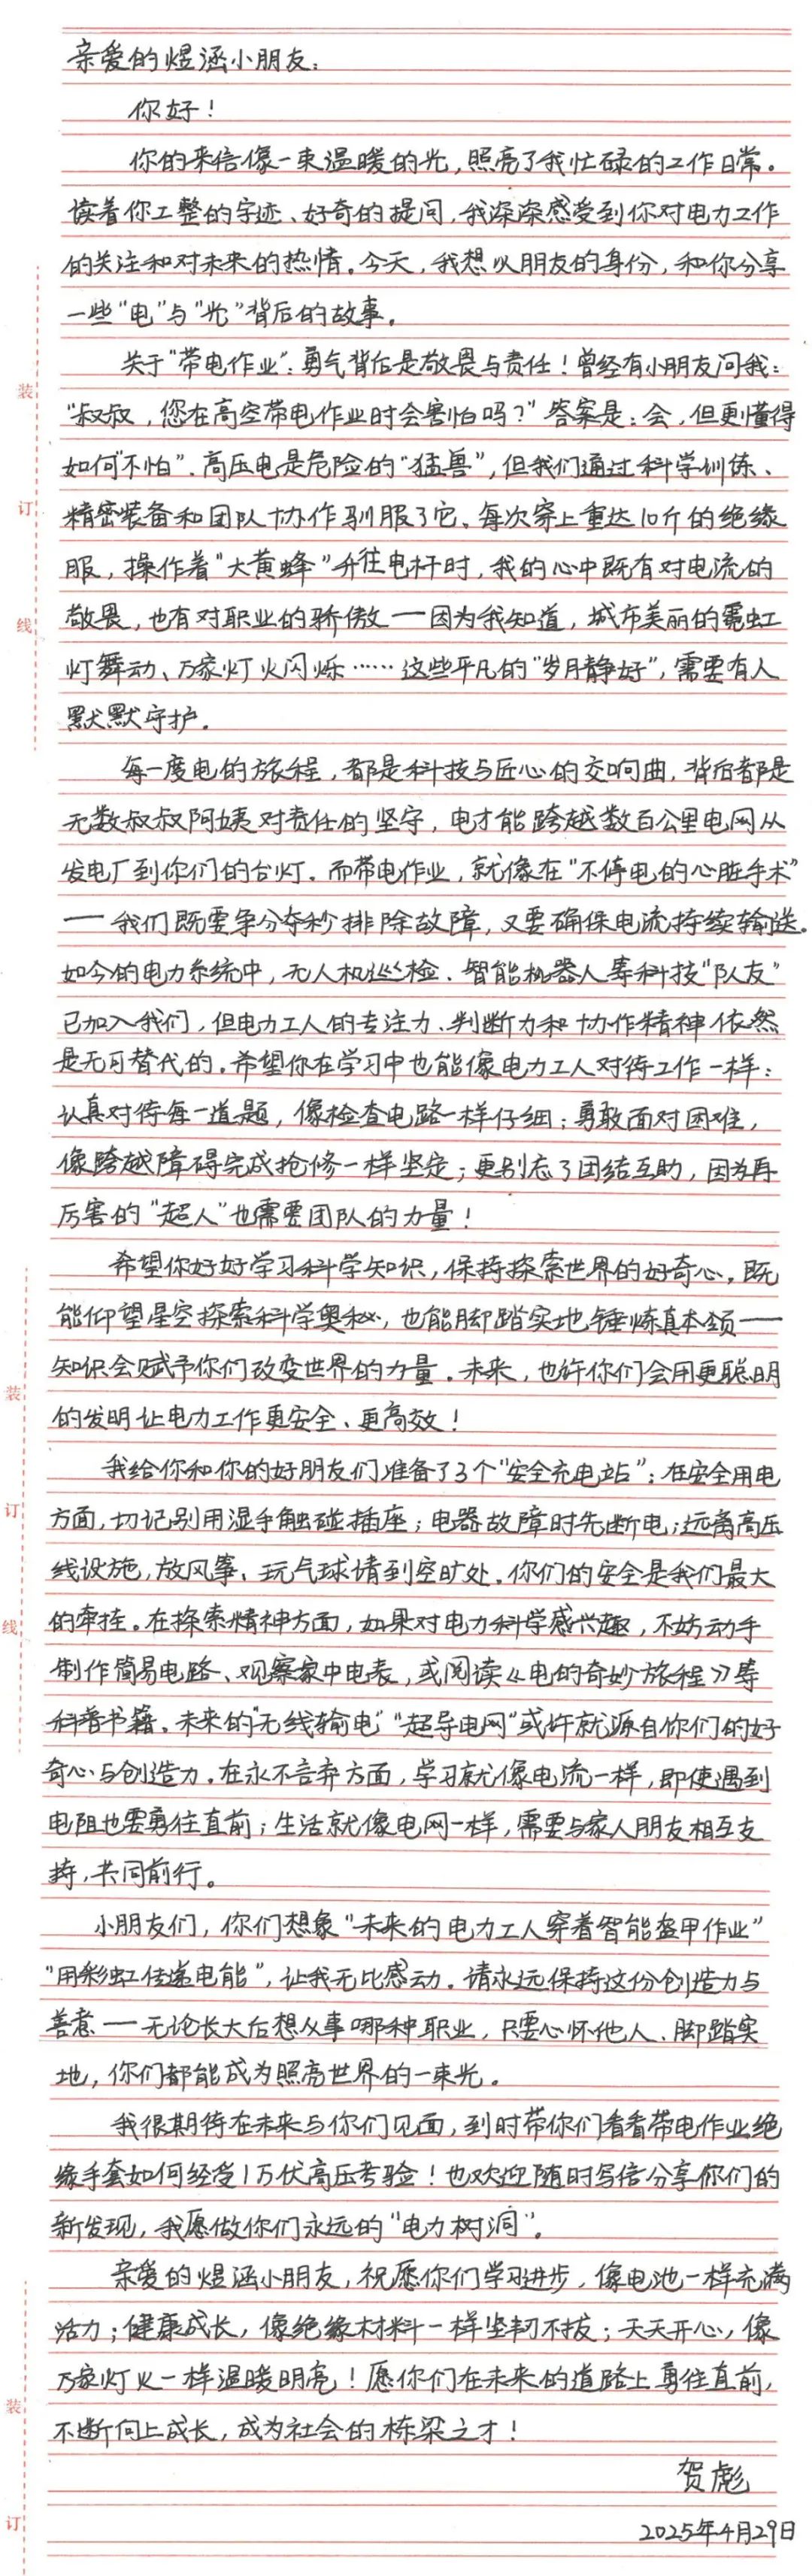 亲爱的煜涵小朋友：
你好！
你的来信像一束温暖的光，照亮了我忙碌的工作日常。
读着你工整的字迹、好奇的提问，我深深感受到你对电力工作
的关注和对未来的热情。今天，我想以朋友的身份，和你分享
一些“电”与“光”背后的故事。
关于“带电作业”：勇气背后是敬畏与责任！曾经有小朋友问我：
“叔叔，您在高空带电作业时会害怕吗？”答案是：会，但更懂得
如何“不怕”。高压电是危险的“猛兽”，但我们通过科学训练、
精密装备和团队协作驯服了它。每次穿上重达10斤的绝缘
服，操作着“大黄蜂”升往电杆时，我的心中既有对电流的
敬畏，也有对职业的骄傲——因为我知道，城市美丽的霓虹
灯舞动、万家灯火闪烁……这些平凡的“岁月静好”，需要有人
默默守护。
每一度电的旅程，都是科技与匠心的交响曲，背后都是
无数叔叔阿姨对责任的坚守，电才能跨越数百公里电网从
发电厂到你们的台灯。而带电作业，就像在“不停电的心脏手术”
——我们既要争分夺秒排除故障，又要确保电流持续输送。
如今的电力系统中，无人机巡检、智能机器人等科技“队友”
已加入我们，但电力工人的专注力、判断力和协作精神依然
是无可替代的。希望你在学习中也能像电力工人对待工作一样：
认真对待每一道题，像检查电路一样仔细；勇敢面对困难，
像跨越障碍完成抢修一样坚定；更别忘了团结互助，因为再
厉害的“超人”也需要团队的力量！
希望你好好学习科学知识，保持探索世界的好奇心。既
能仰望星空探索科学奥秘，也能脚踏实地锤炼真本领——
知识会赋予你们改变世界的力量。未来，也许你们会用更聪明
的发明让电力工作更安全、更高效！
我给你和你的好朋友们准备了3个“安全充电站”：在安全用电
方面，切记别用湿手触碰插座；电器故障时先断电；远离高压
线设施，放风筝、玩气球请到空旷处。你们的安全是我们最大
的牵挂。在探索精神方面，如果对电力科学感兴趣，不妨动手
制作简易电路、观察家中电表，或阅读《电的奇妙旅程》等
科普书籍。未来的“无线输电”“超导电网”或许就源自你们的好
奇心与创造力。在永不言弃方面，学习就像电流一样，即使遇到
电阻也要勇往直前；生活就像电网一样，需要与家人朋友相互支
持，共同前行。
小朋友们，你们想象“未来的电力工人穿着智能盔甲作业”
“用彩虹传递电能”，让我无比感动。请永远保持这份创造力与
善意——无论长大后想从事哪种职业，只要心怀他人、脚踏实
地，你们都能成为照亮世界的一束光。
我很期待在未来与你们见面，到时带你们看看带电作业绝
缘手套如何经受1万伏高压考验！也欢迎随时写信分享你们的
新发现，我愿做你们永远的“电力树洞”。
亲爱的煜涵小朋友，祝愿你们学习进步，像电池一样充满
活力；健康成长，像绝缘材料一样坚韧不拔；天天开心，像
万家灯火一样温暖明亮！愿你们在未来的道路上勇往直前，
不断向上成长，成为社会的栋梁之才！
贺彪
2025年4月29日
装
订
线
装
订
线
装
订